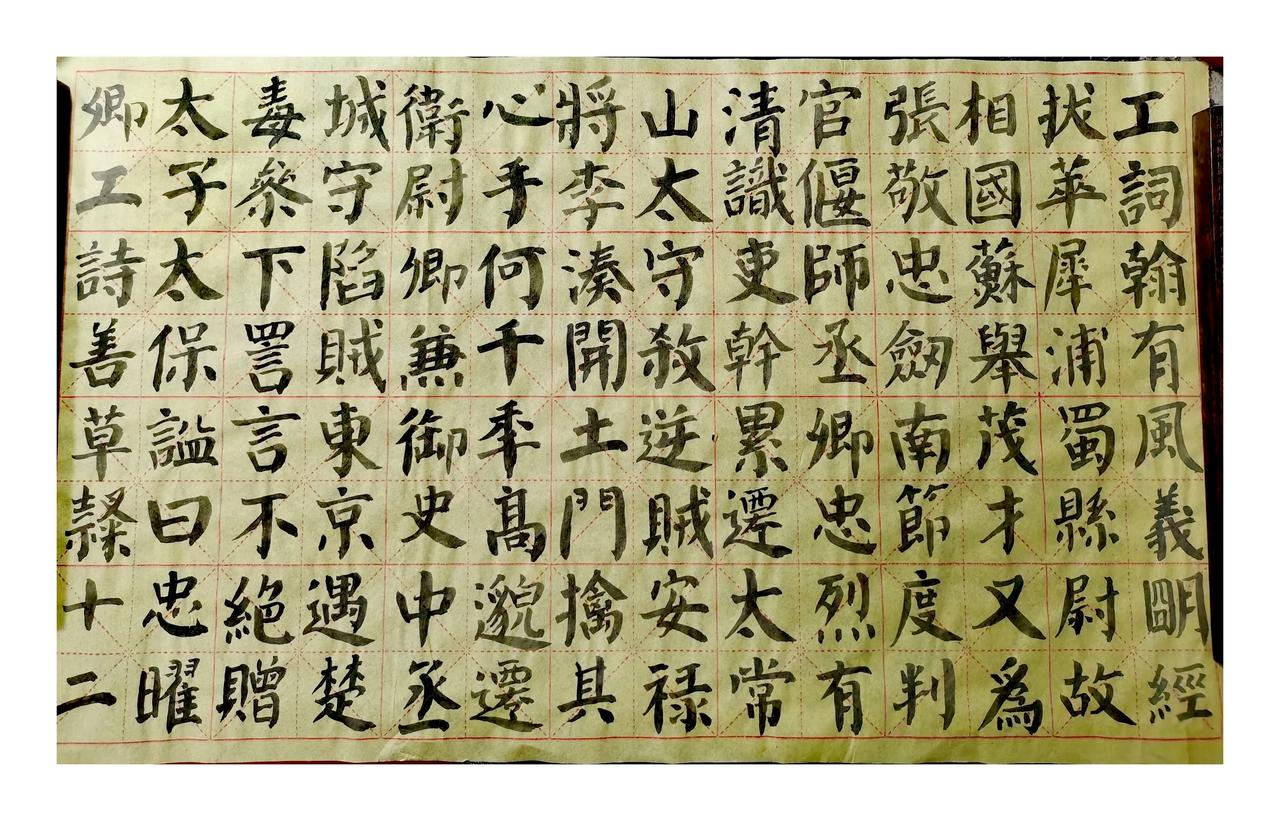 工詞翰有風義明經
拔萃犀浦蜀縣尉故
相國蘇舉茂才又爲
張敬忠劒南節度判
官偃師丞卿忠烈有
清識吏幹累遷太常
山太守殺逆賊安禄
將李湊開土門擒其
心手何千秊髙邈遷
衛尉卿兼御史中丞
城守陷賊東京遇楚
毒叅下詈言不絕贈
太子太保謚曰忠曜
卿工詩善草隸十二